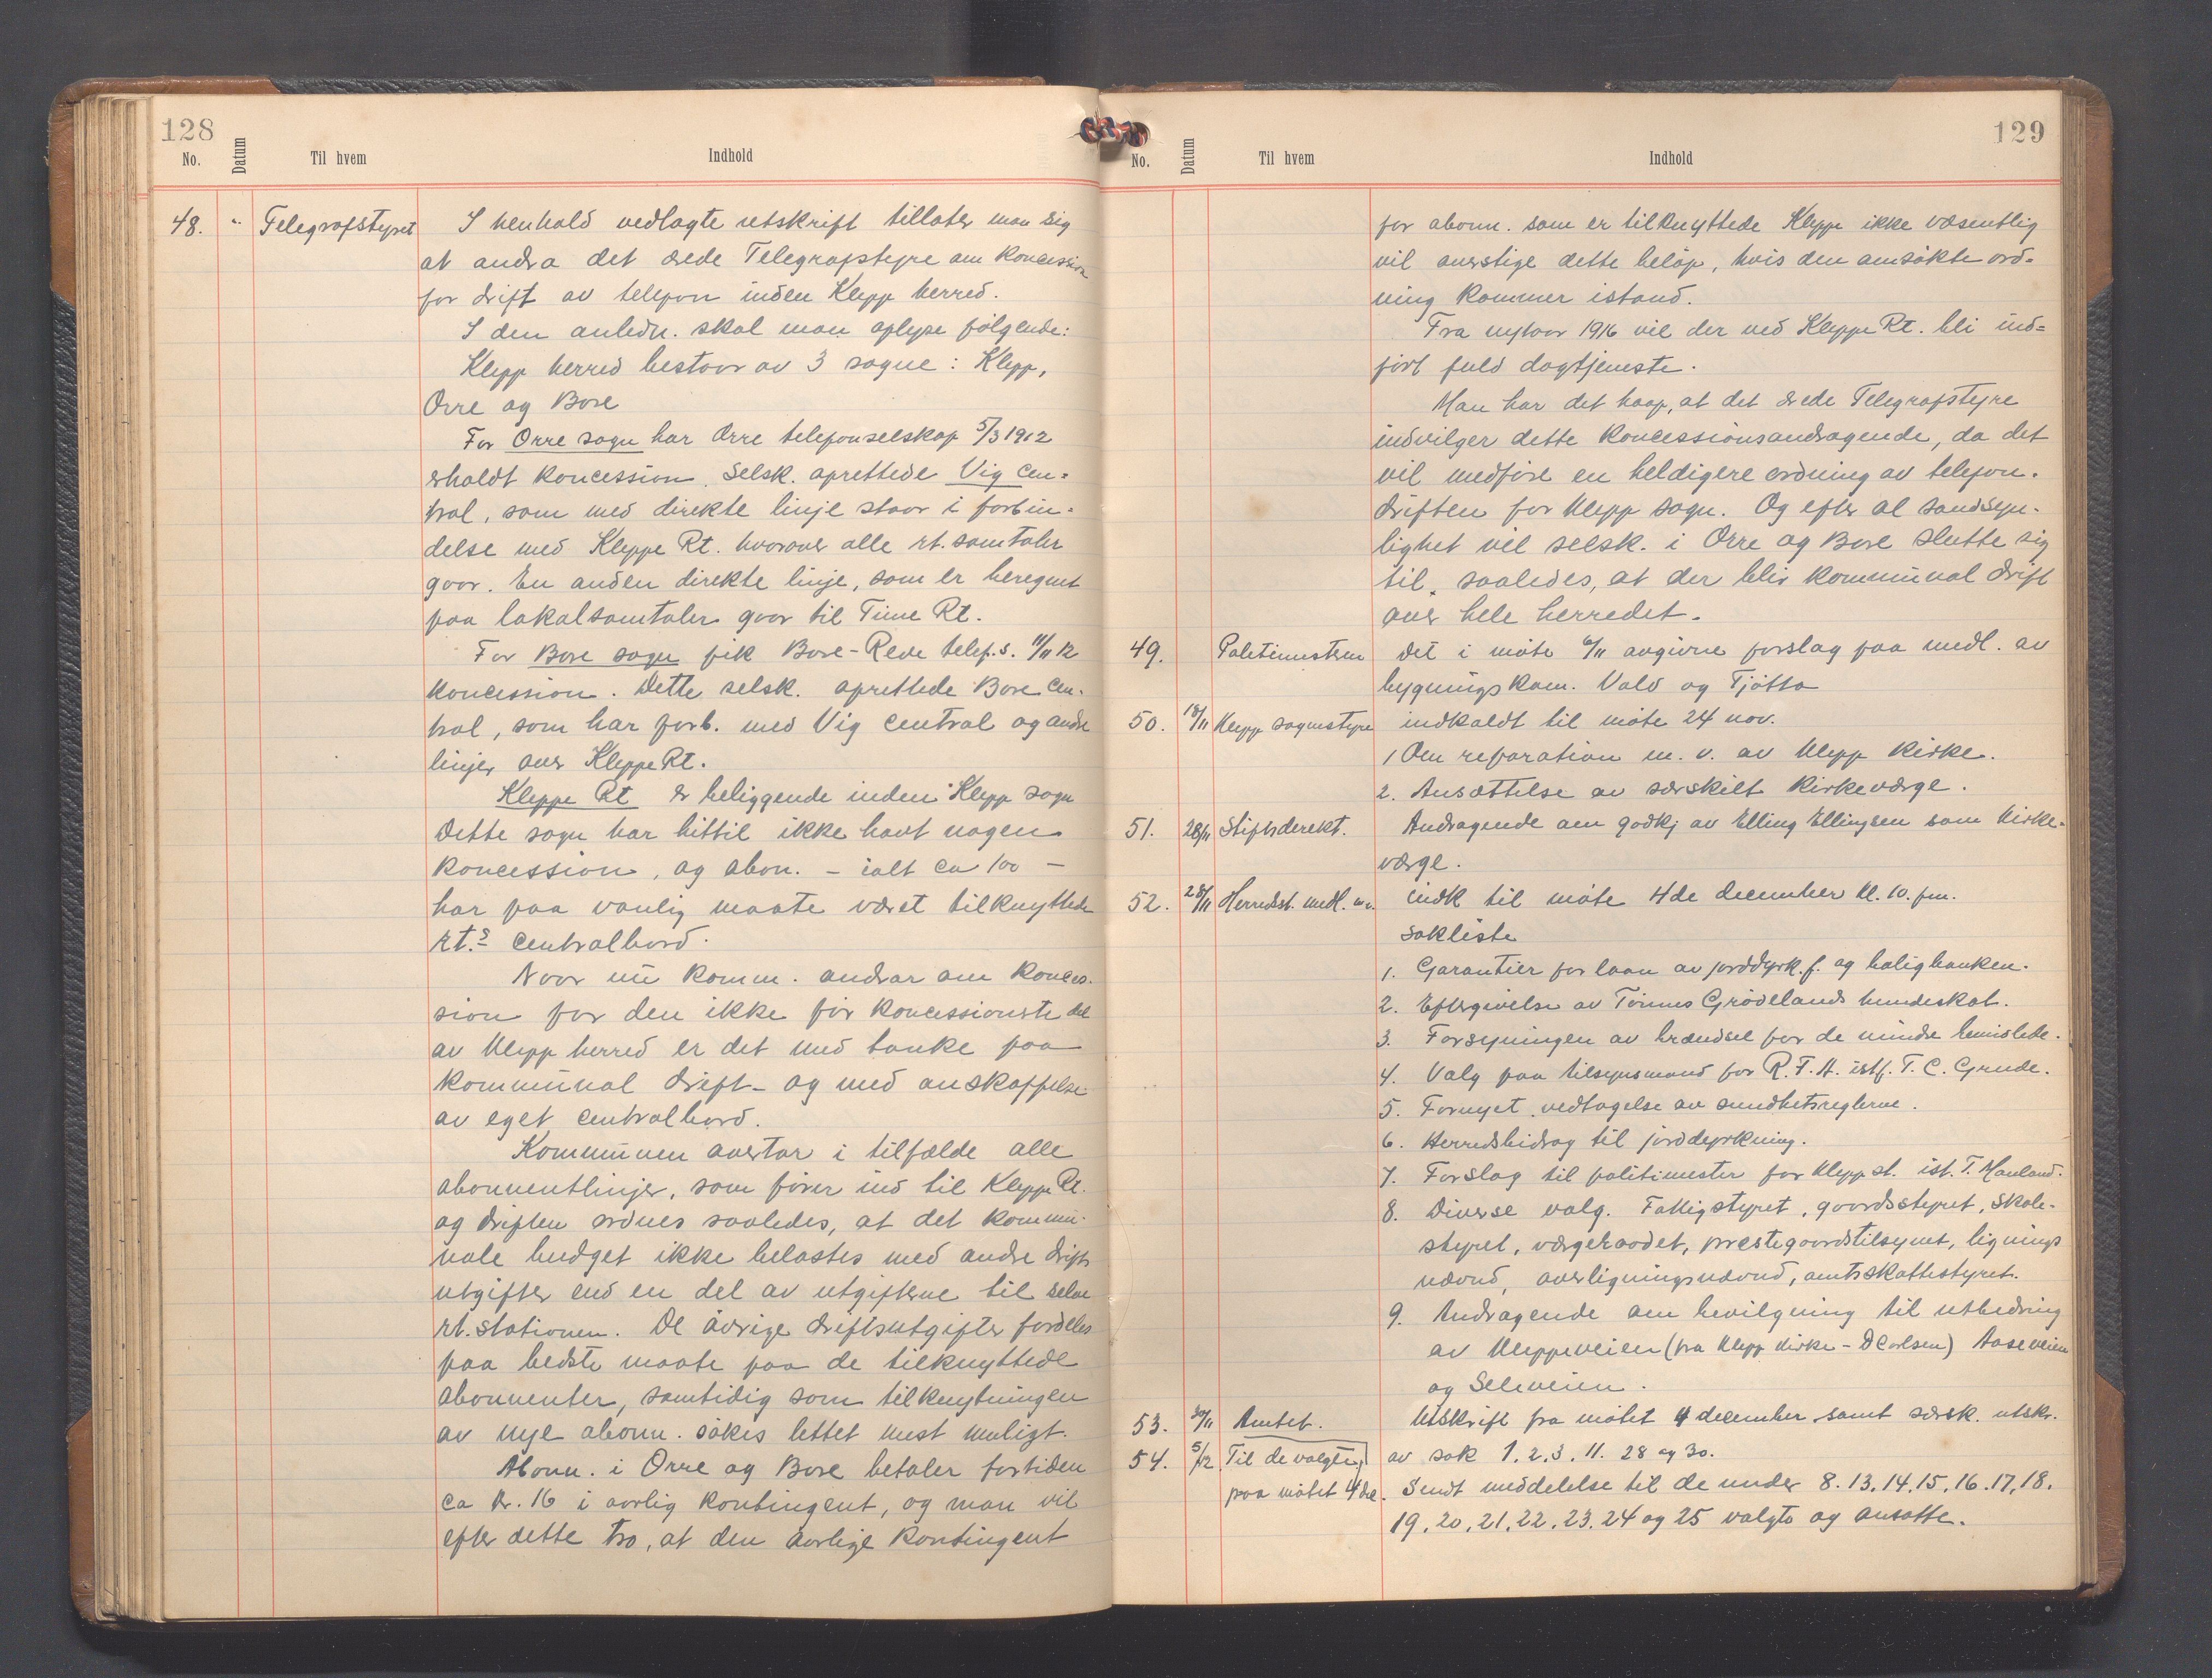 128
No. Datum Til hvem Indhold
48. " Telegrafstyret I henhold vedlagte utskrift tillater man sig
at andra det ærede Telegrafstyre om koncession
for drift av telefon inden Klepp herred.
I den anledn. skal man oplyse følgende:
Klepp herred bestaar av 3 sogne: Klepp,
Orre og Bore
For Orre sogn har Orre telefonselskap 5/3 1912
erholdt koncession. Selsk. oprettede Vig cen=
tral, som med direkte linje staar i forbin-
delse med Kleppe Rt. hvorover alle rt. samtaler
gaar. En anden direkte linje, som er beregnet
paa lokalsamtaler gaar til Time Rt.
For Bore sogn fik Bore-Reve telef.s. 11/11 12
koncession. Dette selsk. oprettede Bore cen-
tral, som har forb. med Vig central og andre
linjer over Kleppe Rt.
Kleppe Rt er beliggende inden Klepp sogn
Dette sogn har hittil ikke havt nogen
koncession, og abon. - ialt ca 100 -
har paa vanlig maate været tilknyttede
rt.s centralbord.
Naar nu komm. andrar om konces-
sion for den ikke før koncessionerte del
av Klepp herred er det med tanke paa
kommunal drift - og med anskaffelse
av eget centralbord.
Kommunen overtar i tilfælde alle
abonnentlinjer, som fører ind til Kleppe Rt.
og driften ordnes saaledes, at det kommu-
nale budget ikke belastes med andre drifts
utgifter end en del av utgifterne til selve
rt. stationen. De øvrige driftsutgifter fordeles
paa bedste maate paa de tilknyttede
abonnenter, samtidig som tilknytningen
av nye abonn. søkes lettet mest muligt.
Abonn. i Orre og Bore betaler fortiden
ca kr. 16 i aarlig kontingent, og man vil
efter dette tro, at den aarlige kontingent
129
No. Datum Til hvem Indhold
for abonn. som er tilknyttede Kleppe ikke væsentlig
vil overstige dette beløp, hvis den ansøkte ord-
ning kommer istand.
Fra nytaar 1916 vil der ved Kleppe Rt. bli ind=
ført fuld dagtjeneste.
Man har det haap, at det ærede Telegrafstyre
indvilger dette koncessionsandragende, da det
vil medføre en heldigere ordning av telefon-
driften for Klepp sogn. Og efter al sandsyn-
lighet vil selsk. i Orre og Bore slutte sig
til, saaledes, at der blir kommunal drift
over hele herredet.
49. Politimesteren det i møte 6/11 avgivne forslag paa medl. av
bygningskom. Vold og Tjøtta
50. 18/11 Klepp sognestyre indkaldt til møte 24 nov.
1 Om reparation m. v. av Klepp kirke.
2. Ansættelse av særskilt kirkeværge.
51. 28/11 Stiftsdirekt. Andragende om godkj av Elling Ellingsen som kirke-
værge.
52. 28/11 Herredsst. medl. m.v. indk til møte 4de december kl. 10. fm.
Sakliste
1. Garantier for laan av jorddyrk. f. og boligbanken.
2. Eftergivelse av Tønnes Grødelands hundeskat.
3. Forsyningen av brændsel for de mindre bemidlede.
4. Valg paa tilsynsmand for R. F. A. istf. T. C. Grude.
5. Fornyet vedtagelse av sundhetsreglerne.
6. Herredsbidrag til jorddyrkning.
7. Forslag til politimester for Klepp st. ist. T. Hauland.
8. Diverse valg. Fattigstyret, gaardsstyret, skole-
styret, værgeraadet, prestegaardstilsynet, lignings
nævnd, overligningsnævnd, amtsskattestyret.
9. Andragende om bevilgning til utbedring
av Kleppeveien (fra Klepp kirke - D Carlsen) Aaseveien
og Seleveien.
53. 30/11 Amtet. Utskrift fra møtet 4 december samt særsk. utskr.
54. 5/12 Til de valgte av sak 1. 2. 3. 11. 28 og 30.
paa møtet 4 de. Sendt meddelelse til de under 8. 13. 14. 15. 16. 17, 18.
19. 20. 21. 22. 23. 24 og 25 valgte og ansatte.